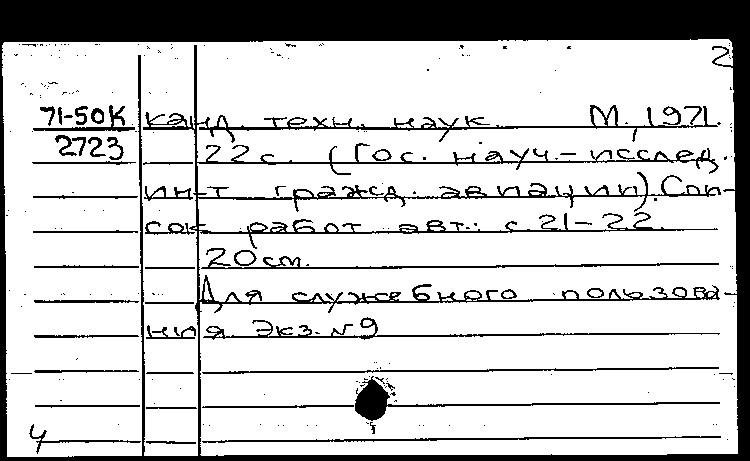 2
71-50К канд. техн. наук. М., 1971.
2723 22 с. (Гос. науч.-исслед.
ин-т гражд. авиации). Спи-
сок работ авт.: с. 21-22.
20 см.
Для служебного пользова-
ния Экз. №9
4